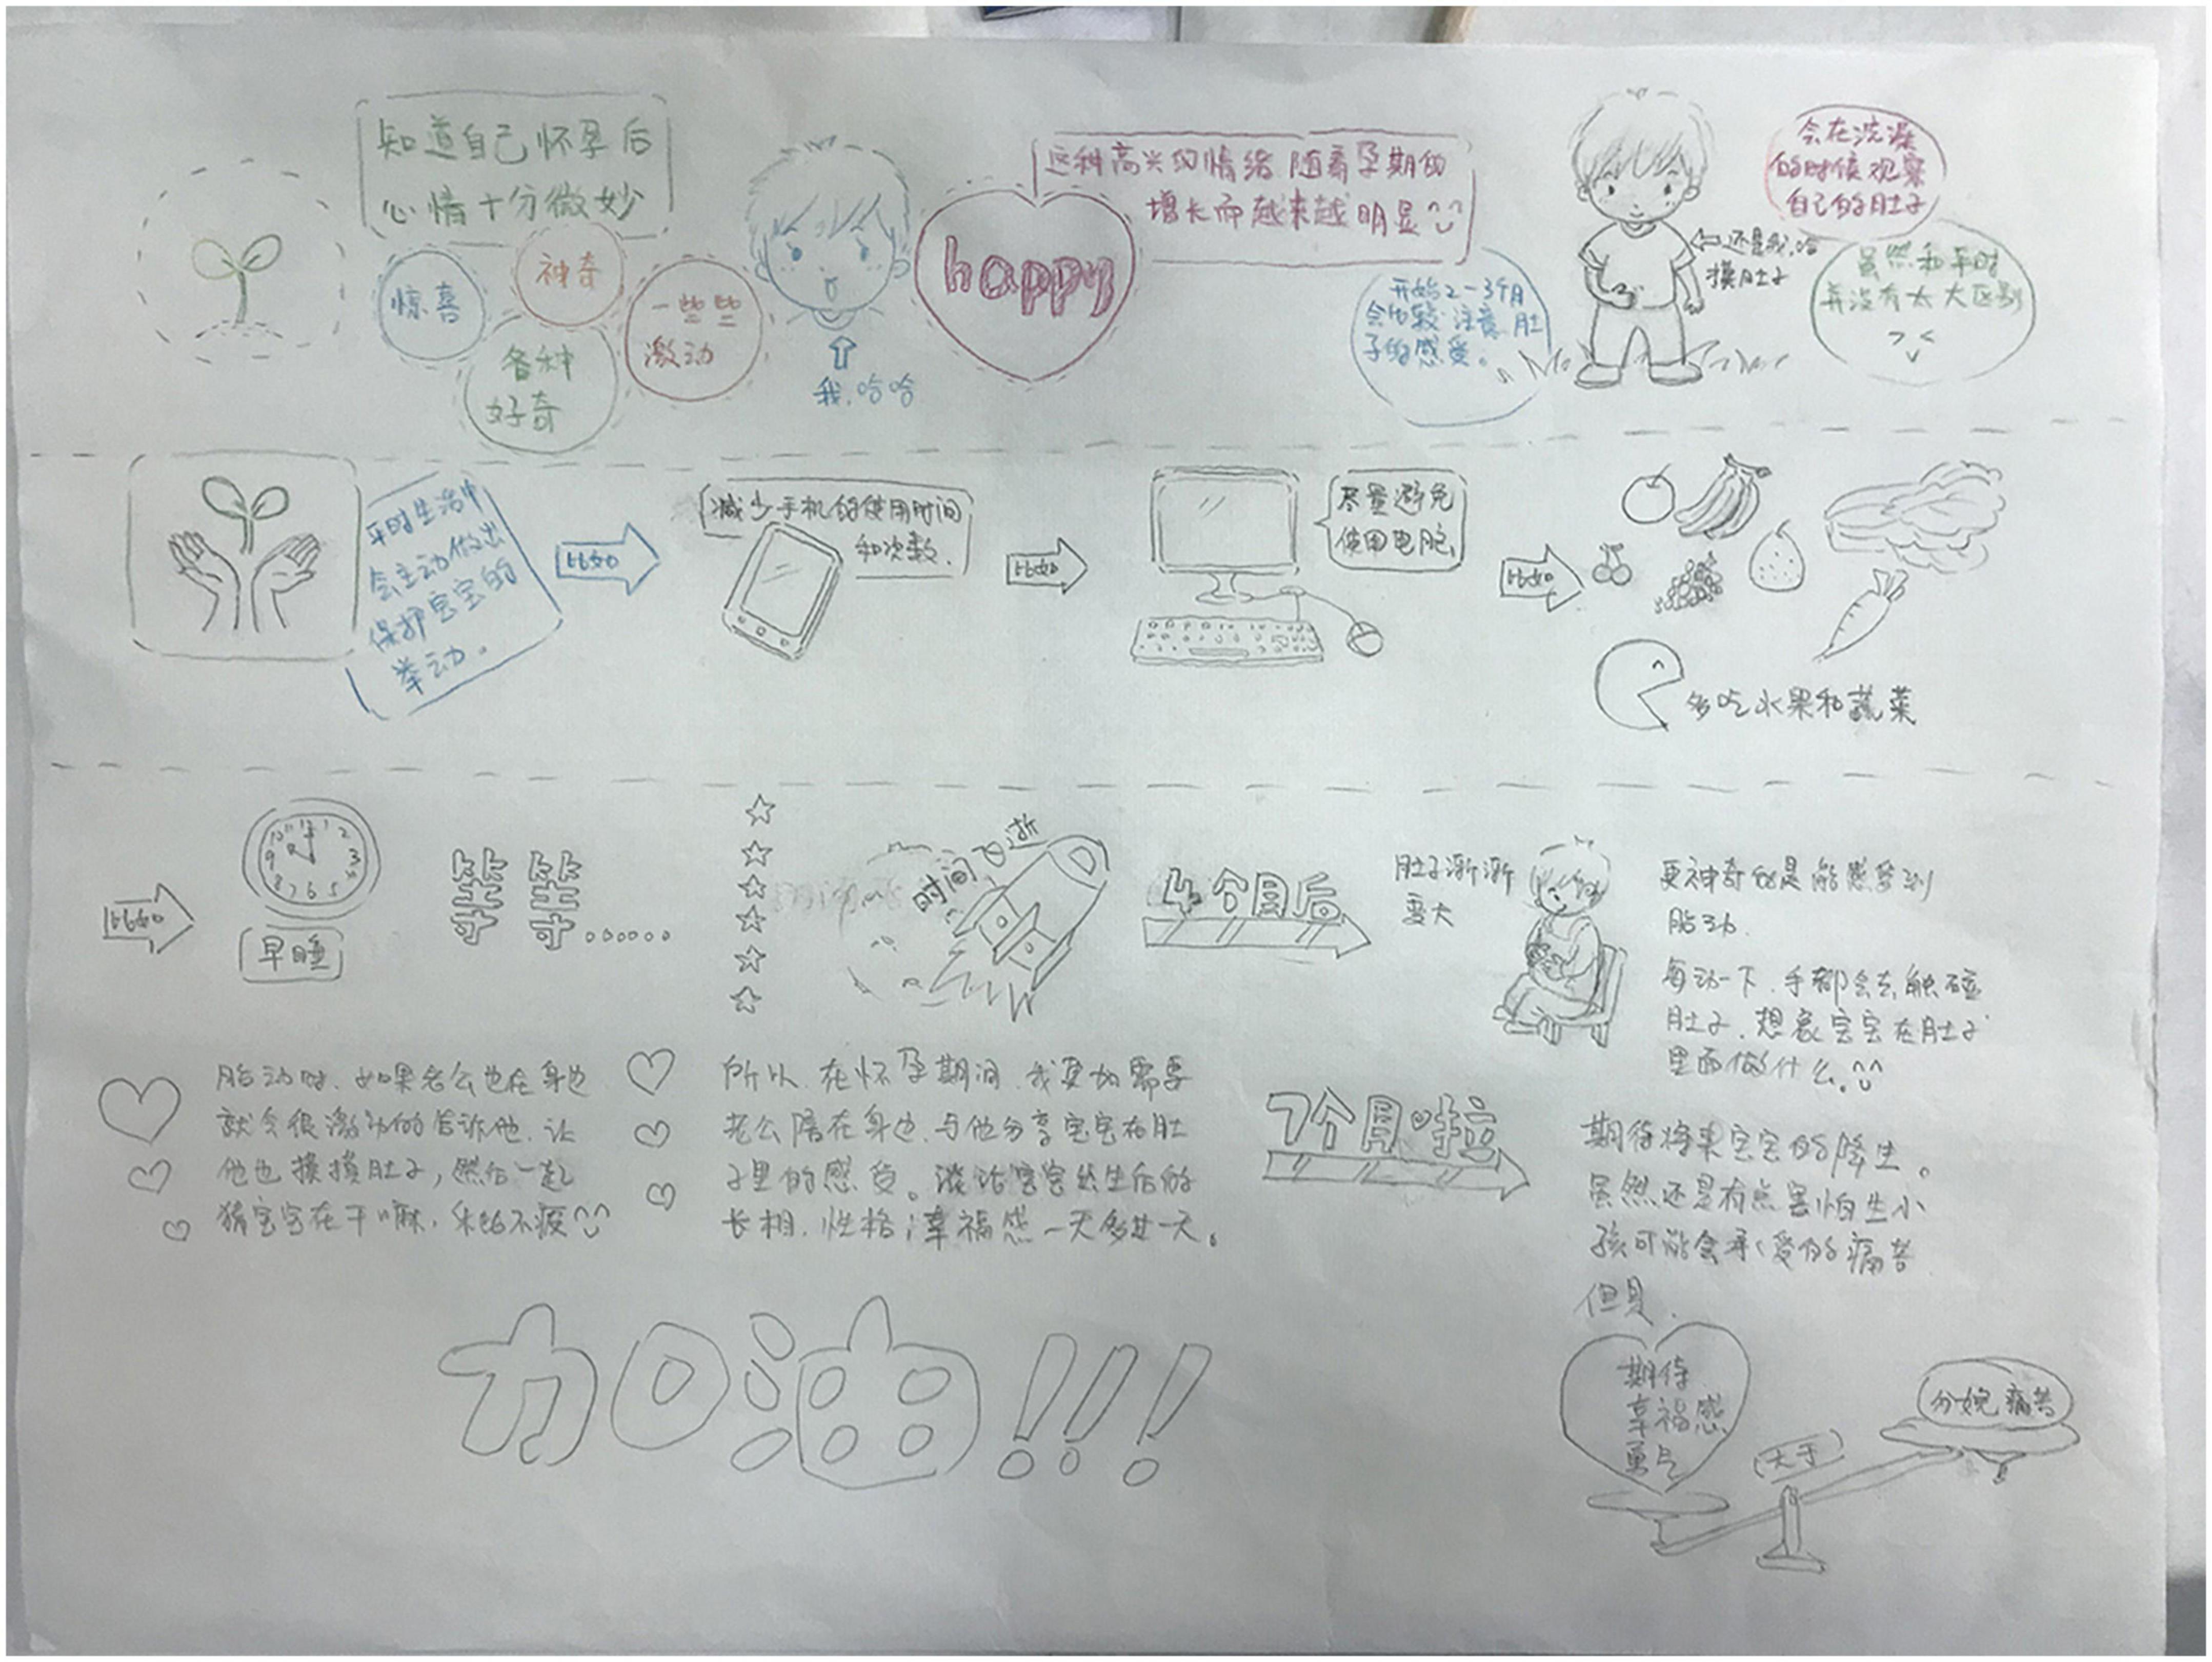 知道自己怀孕后
心情十分微妙
惊喜
神奇
各种
好奇
一些些
激动
我.哈哈
happy
这种高兴的情绪随着孕期的
增长而越来越明显
开始2-3个月
会比较注意肚
子的感受。
还是我.哈
摸肚子
会在洗澡
的时候观察
自己的肚子
虽然和平时
并没有太大区别
平时生活中
会主动做出
保护宝宝的
举动。
比如
减少手机的使用时间
和次数.
比如
尽量避免
使用电脑
比如
多吃水果和蔬菜
比如
12 1 2 3 5 6 7 8 9 10 11
早睡
等等......
时间飞逝
4个月后
肚子渐渐
变大
更神奇的是能感受到
胎动.
每动一下.手都会去触碰
肚子.想象宝宝在肚子
里面做什么.
胎动时.如果老公也在身边
就会很激动的告诉他.让
他也摸摸肚子,然后一起
猜宝宝在干嘛,乐此不疲
所以.在怀孕期间.我更加需要
老公陪在身边.与他分享宝宝在肚
子里的感受。谈论宝宝出生后的
长相.性格;幸福感一天多过一天。
7个月啦
期待将来宝宝的降生。
虽然还是有点害怕生小
孩可能会承受的痛苦
但是.
期待
幸福感
勇气
大于
分娩痛苦
加油!!!